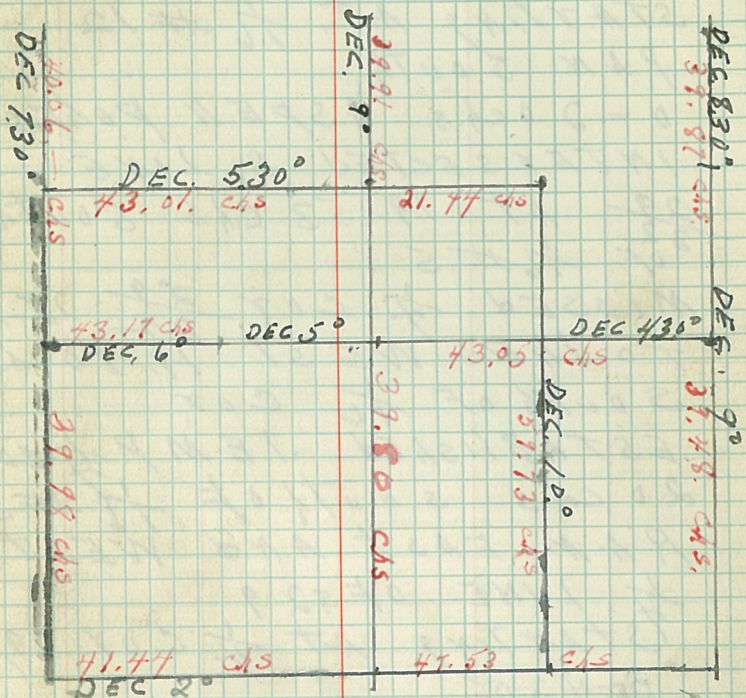 DEC 7.30°
40.06 chs
DEC. 9°
39.91 chs
DEC 8.30°
39.87 chs.
DEC. 5.30°
43.01. chs
21.44 chs
43.17 chs
DEC. 6°
DEC 5°
43.05 chs
DEC 4.30°
DEC. 9°
39.98 chs
39.80 chs
DEC. 10.°
chs.
41.44 chs
chs
DEC 2°